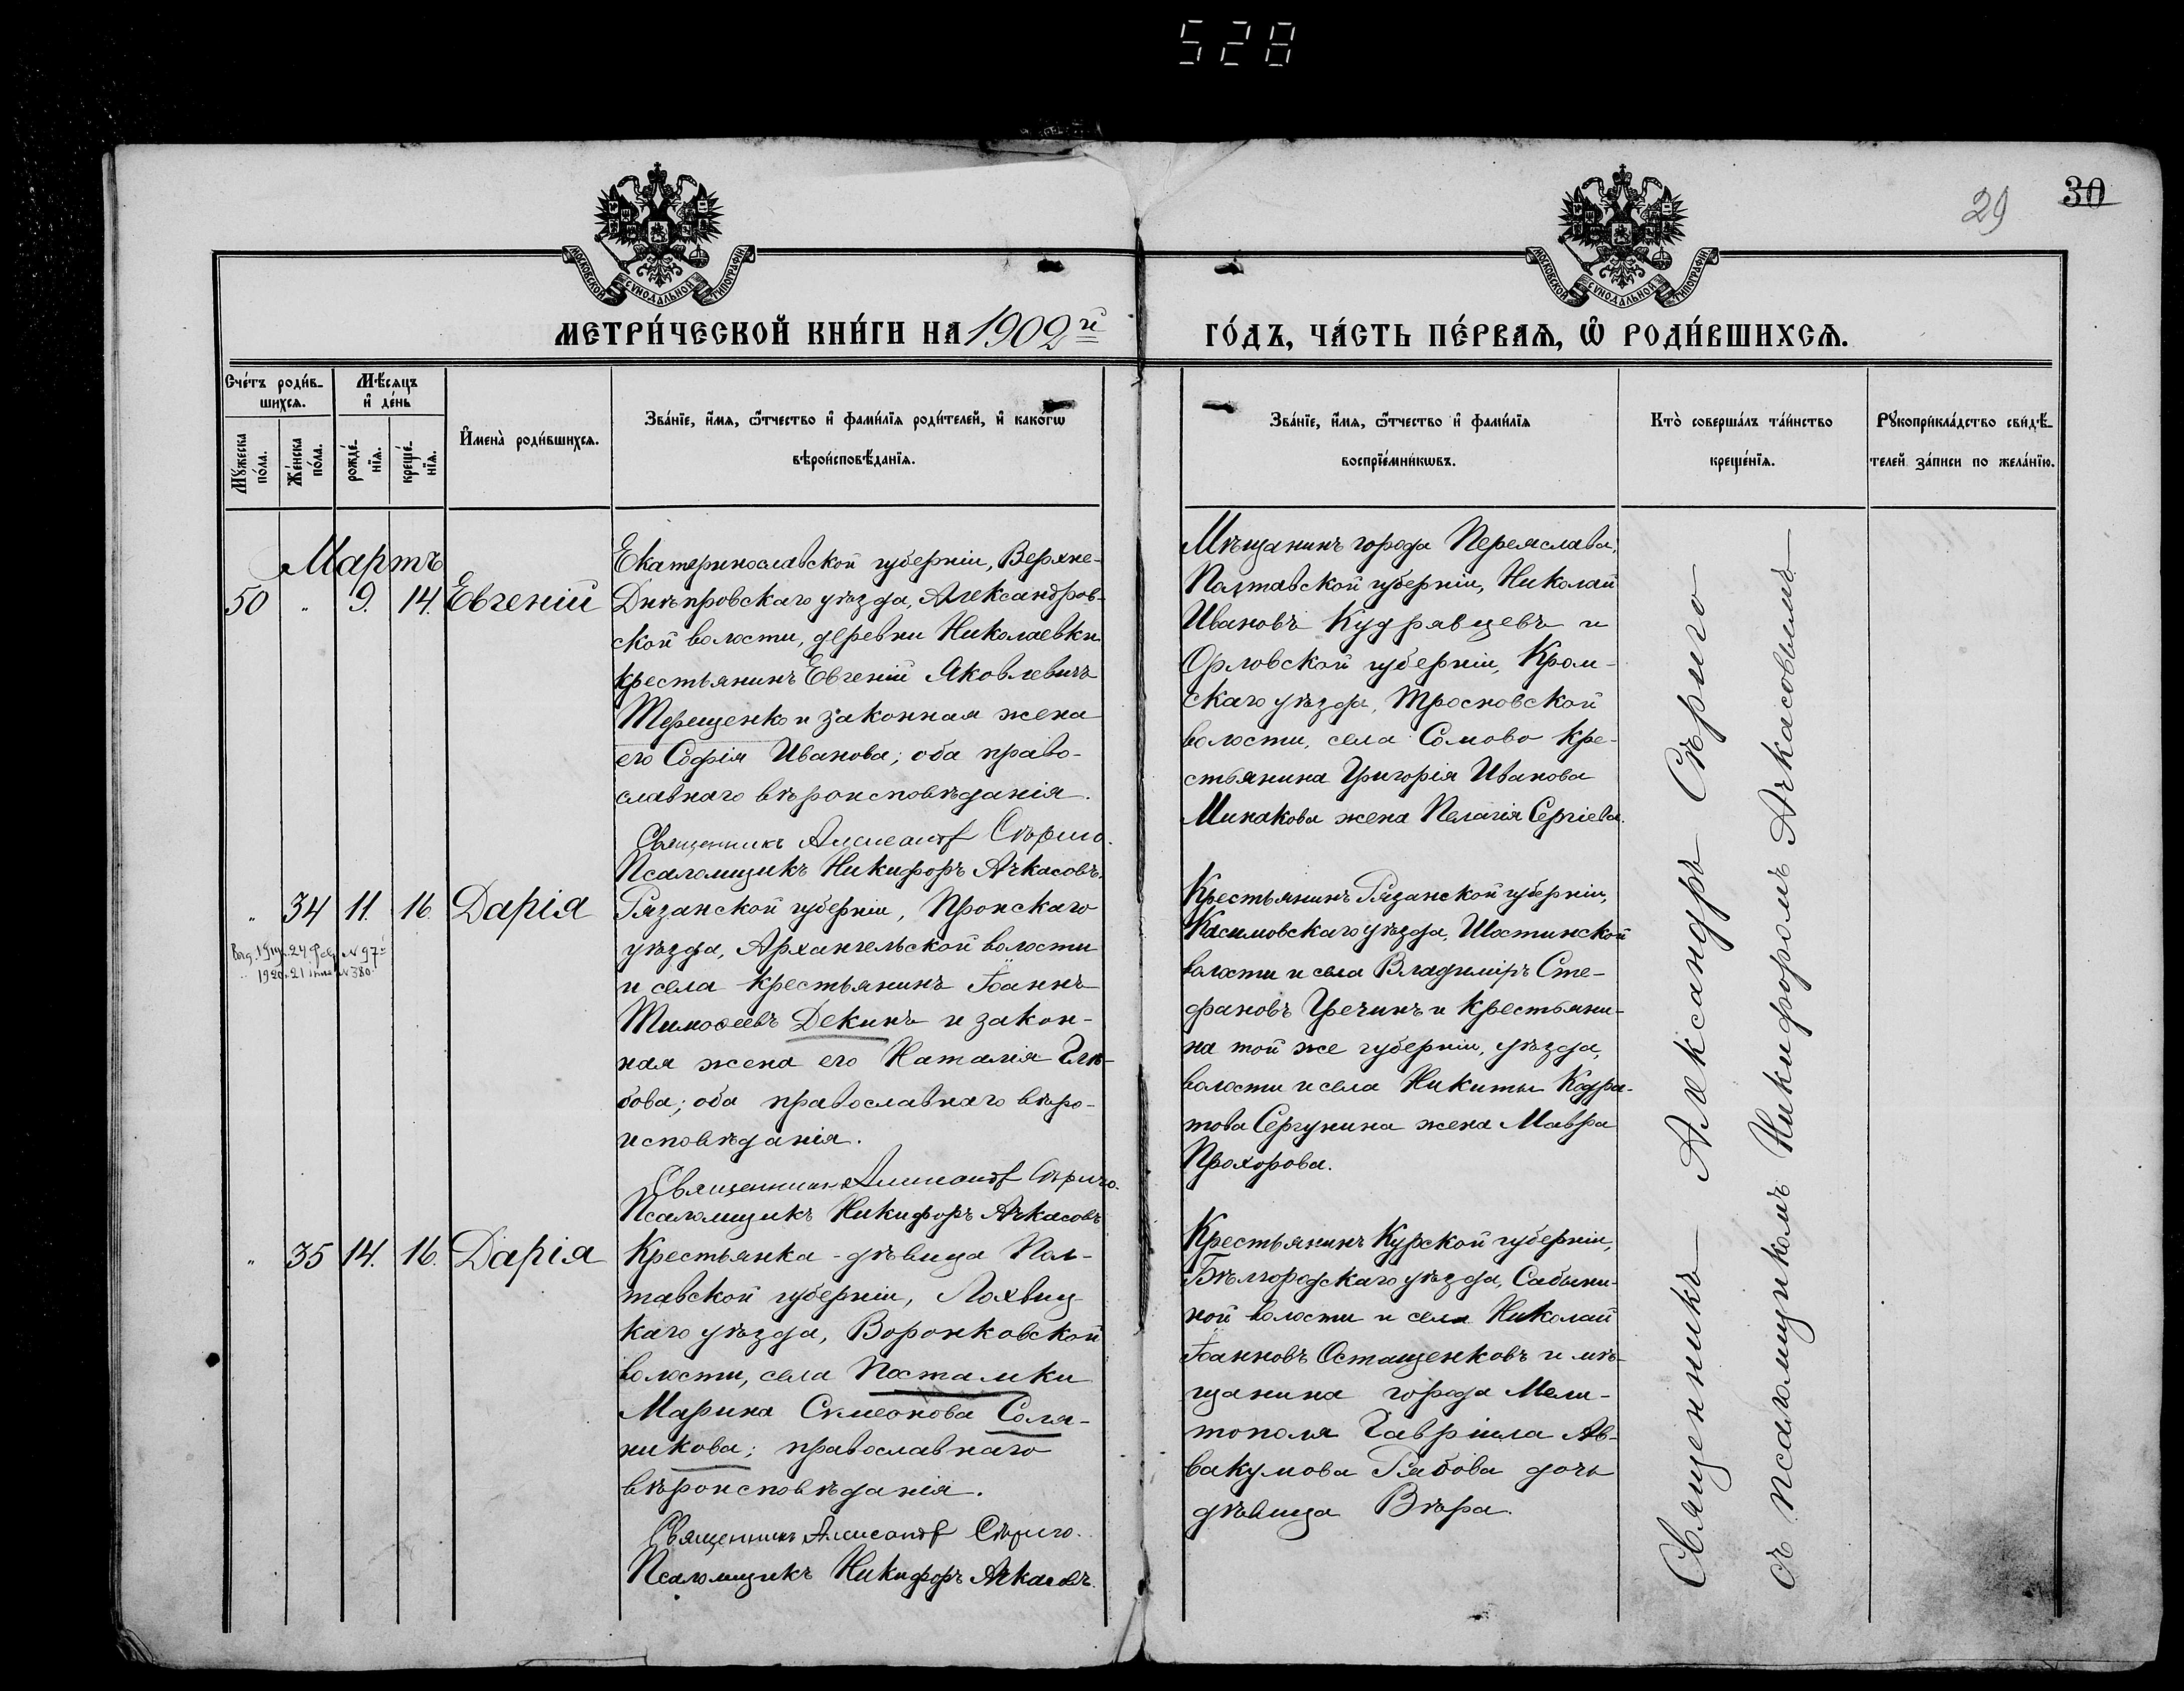 528
29
30
МОСКОВСКОЙ СѴНОДАЛЬНОЙ ТИПОГРАФІИ
МОСКОВСКОЙ СѴНОДАЛЬНОЙ ТИПОГРАФІИ
МЕТРИ́ЧЕСКОЙ КНИ́ГИ НА 1902й
ГО́ДЪ, ЧА́СТЬ ПЕ́РВАѦ, Ѡ҆ РОДИ́ВШИХСѦ.
Сче́тъ роди́в-
шихсѧ.
Мѣ́сѧцъ
и҆ де́нь
Мꙋ́жеска
по́ла.
Же́нска
по́ла.
рожде́-
нїѧ.
креще́-
нїѧ.
И҆мена̀ роди́вшихсѧ.
Зва́нїе, и҆́мѧ, ѻ҆́тчество и҆ фами́лїѧ роди́телей, и҆ како́гѡ
вѣроисповѣ́данїѧ.
Зва́нїе, и҆́мѧ, ѻ҆́тчество и҆ фами́лїѧ
воспрїе́мникѡвъ.
Кто̀ соверша́лъ та́инство
креще́нїѧ.
Рꙋкоприкла́дство свидѣ́-
телей за́писи по жела́нїю.
Мартъ
50 " 9. 14. Евгеній
Екатеринославской губерніи, Верхне-
Днѣпровскаго уѣзда, Александров-
ской волости, деревни Николаевки
крестьянинъ Евгеній Яковлевичъ
Терещенко и законная жена
его Софія Иванова; оба право-
славнаго вѣроисповѣданія.
Священникъ Александр Сѣриго.
Псаломщикъ Никифоръ Ачкасовъ.
Мѣщанинъ города Переяслава,
Полтавской губерніи, Николай
Ивановъ Кудрявцевъ и
Орловской губерніи, Кром-
скаго уѣзда, Тросновской
волости, села Сомово кре-
стьянина Григорія Иванова
Минакова жена Пелагія Сергіева.
" 34 11. 16. Дарія
1919. 24 фев. N 97
1920. 21 N 380.
Рязанской губерніи, Пронскаго
уѣзда, Архангельской волости
и села крестьянинъ Іоаннъ
Тимоѳеевъ Декинъ и закон-
ная жена его Наталія Глѣ-
бова; оба православнаго вѣро-
исповѣданія.
Священникъ Александр Сѣриго.
Псаломщикъ Никифоръ Ачкасовъ
Крестьянинъ Рязанской губерніи,
Касимовскаго уѣзда, Шостинской
волости и села Владиміръ Сте-
фановъ Гречинъ и крестьяни-
на той же губерніи, уѣзда,
волости и села Никиты Кодра-
това Сергунина жена Мавра
Прохорова.
" 35 14. 16. Дарія
Крестьянка - дѣвица Пол-
тавской губерніи, Лохвиц-
каго уѣзда, Воронковской
волости, села Постамки
Марина Симеонова Соля-
никова; православнаго
вѣроисповѣданія.
Священникъ Александр Сѣриго.
Псаломщикъ Никифоръ Ачкасовъ.
Крестьянинъ Курской губерніи,
Бѣлгородскаго уѣзда, Сабыни-
ной волости и села Николай
Іоанновъ Остащенковъ и мѣ-
щанина города Мели-
тополя Гавріила Ав-
вакумова Рябова дочь
дѣвица Вѣра.
Священникъ Александръ Сѣриго
съ псаломщикомъ Никифоромъ Ачкасовымъ